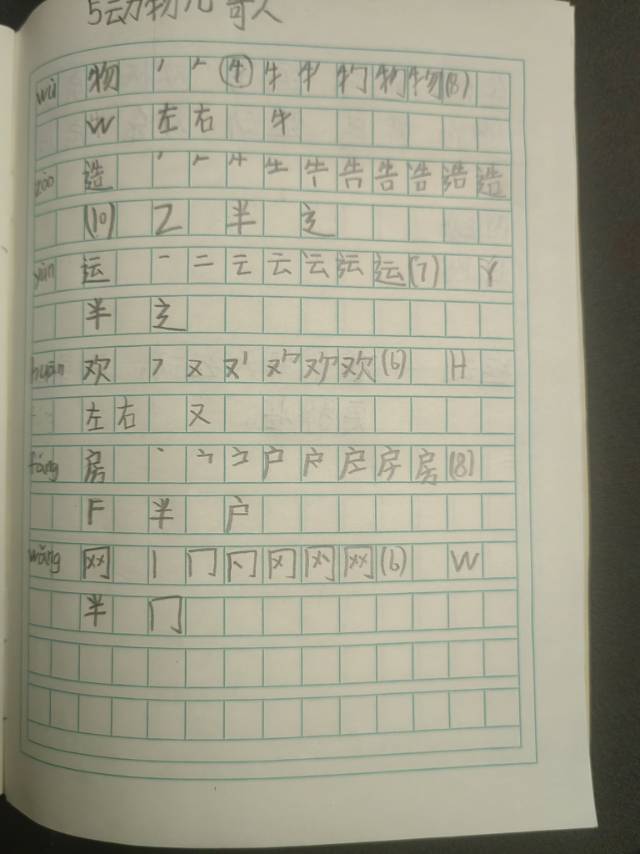 5动物儿歌
wù 物 丿 𠂉 牛 牛 牜 物 物 物 (8)
W 左右 牛
zào 造 丿 𠂉 牛 生 告 告 告 浩 浩 造
(10) Z 半 辶
yùn 运 一 二 云 云 运 运 运 (7) Y
半 辶
huān 欢 フ 又 欢 欢 欢 欢 (6) H
左右 又
fáng 房 丶 户 户 房 房 房 房 (8)
F 半 户
wǎng 网 丨 冂 冈 冈 网 网 (6) W
半 冂